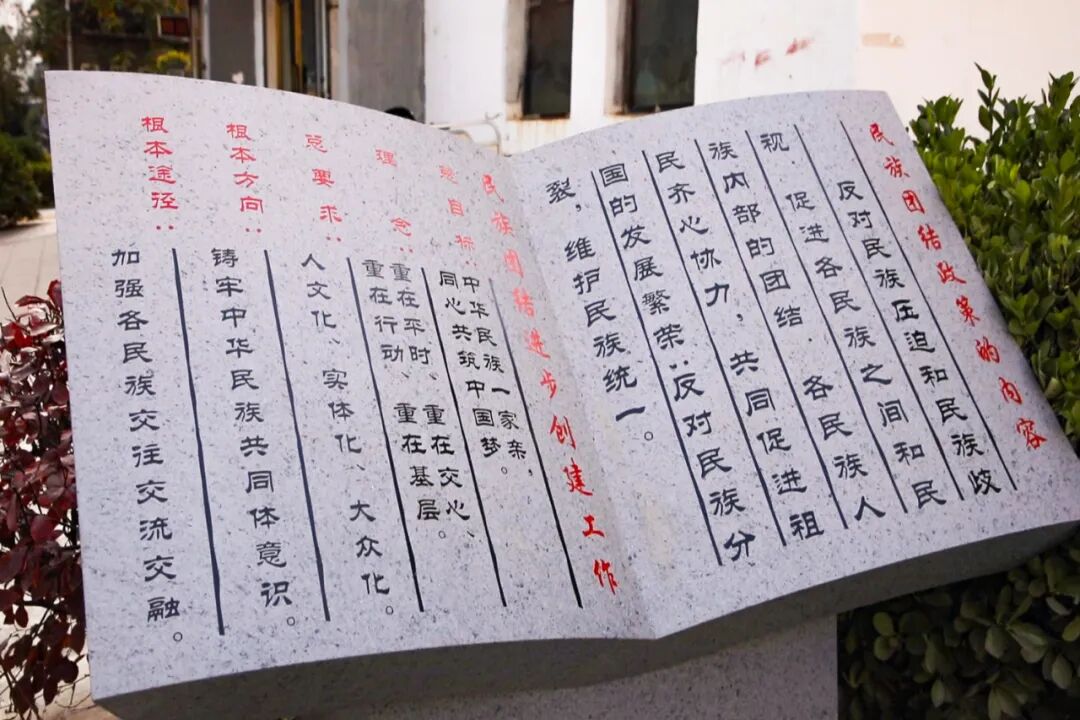 民族团结政策的内容
反对民族压迫和民族歧
视,促进各民族之间和民
族内部的团结,各民族人
民齐心协力,共同促进祖
国的发展繁荣;反对民族分
裂,维护民族统一。
民族团结进步创建工作
总目标:中华民族一家亲,
同心共筑中国梦。
理念:重在平时、重在交心、
重在行动、重在基层。
总要求:人文化、实体化、大众化。
根本方向:铸牢中华民族共同体意识。
根本途径:加强各民族交往交流交融。